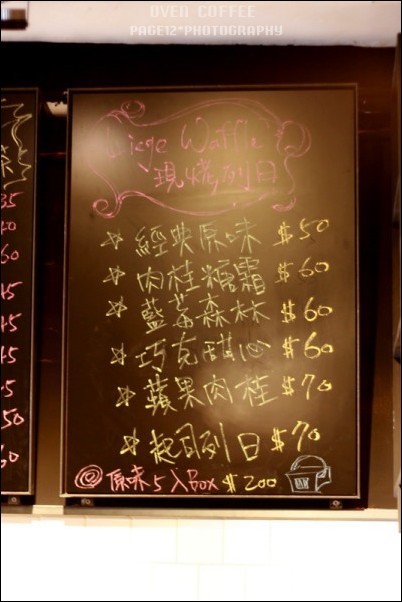 OVEN CUFFEE
PAGE12*PHOTOGRAPHY
Liege Waffle
現烤列日
經典原味 $50
肉桂糖霜 $60
藍莓森林 $60
巧克酷心 $60
蘋果肉桂 $70
起司列日 $70
原味5入Box $200
35
60
45
45
45
50